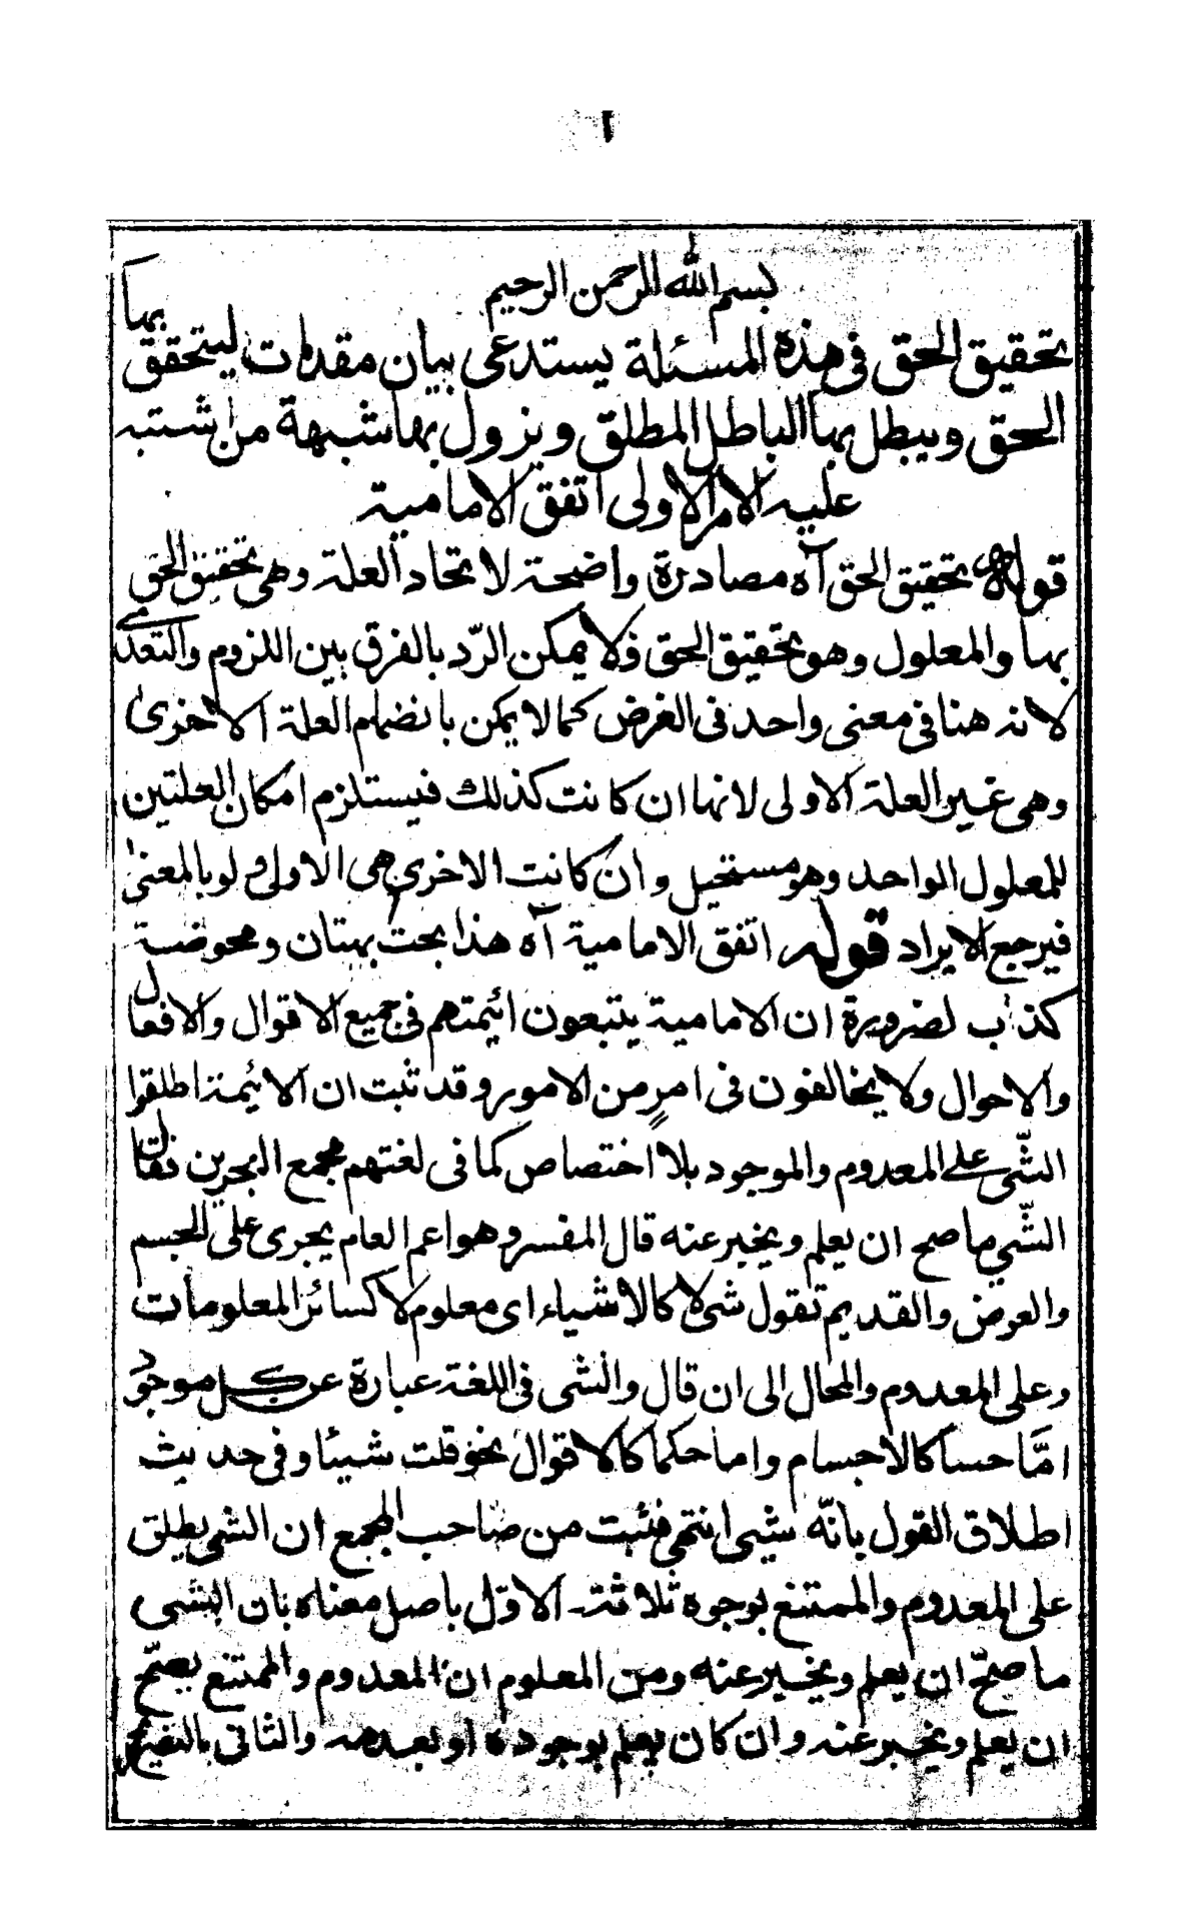 ١
بسم الله الرحمن الرحيم
تحقيق الحق في هذه المسئلة يستدعي بيان مقدمات ليتحقق بها
الحق ويبطل بها الباطل المطلق ويزول بها شبهة من اشتبه
عليه الامر الاولى اتفق الامامية
قوله تحقيق الحق آه مصادرة واضحة لاتحاد العلة وهي تحقيق الحق
بها والمعلول وهو تحقيق الحق فلا يمكن الردّ بالفرق بين اللزوم والتعدي
لانه هنا في معنى واحد في الغرض كما لا يمكن بانضمام العلة الاخرى
وهي غير العلة الاولى لانها ان كانت كذلك فيستلزم امكان العلتين
للمعلول الواحد وهو مستحيل وان كانت الاخرى هي الاولى ولو بالمعنى
فيرجع الايراد قوله اتفق الامامية آه هذا بحت بهتان ومحوضة
كذاب لضرورة ان الامامية يتبعون ائيمتهم في جميع الاقوال والافعال
والاحوال ولا يخالفون في امرٍ من الامور وقد ثبت ان الائيمة اطلقوا
الشّي على المعدوم والموجود بلا اختصاص كما في لغتهم مجمع البحرين فقال
الشّي ما صح ان يعلم ويخبر عنه قال المفسر وهو اعم العام يجرى على الجسم
والعرض والقديم تقول شئ لا كالاشياء اى معلوم لا كسائر المعلومات
وعلى المعدوم والمحال الى ان قال والشى في اللغة عبارة عن كل موجود
امّا حسا كالاجسام واما حكما كالاقوال نحو قلت شيئا وفي حديث
اطلاق القول بانّه شيى انتهى فثبت من صاحب المجمع ان الشي يطلق
على المعدوم والممتنع بوجوه ثلاثة الاوّل باصل معناه بان الشى
ما صحّ ان يعلم ويخبر عنه ومن المعلوم ان المعدوم والممتنع يصحّ
ان يعلم ويخبر عنه وان كان يعلم بوجوده او بعدمه والثانى